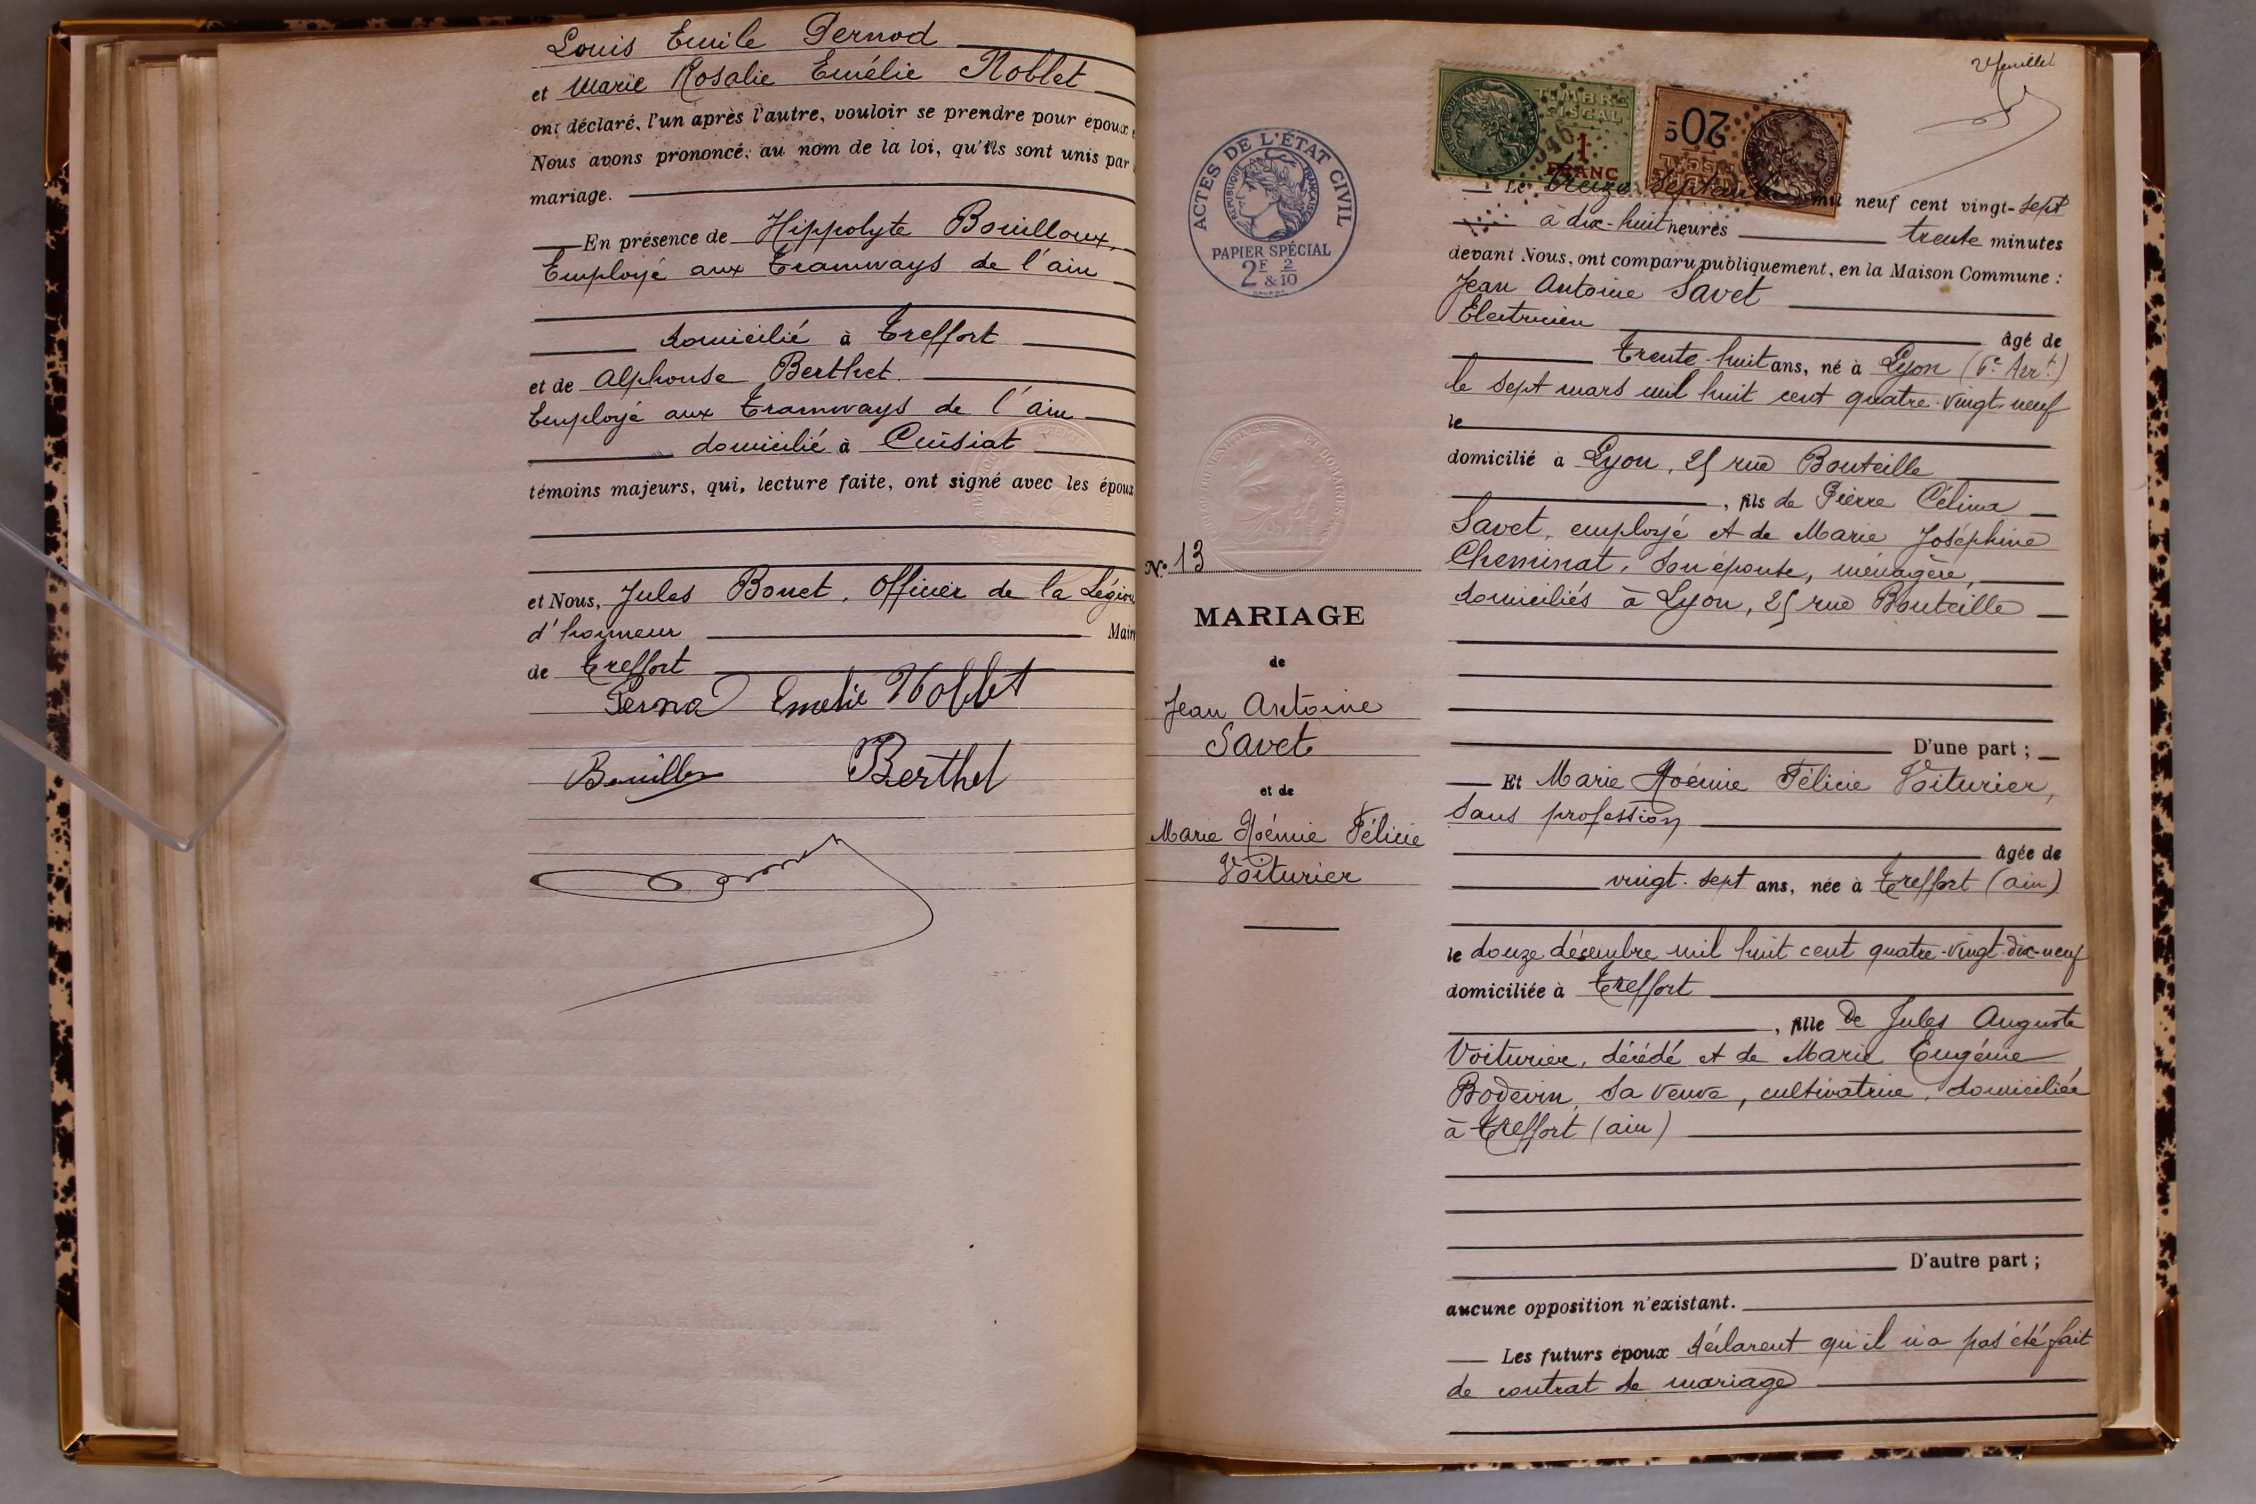 Louis Emile Pernod
et Marie Rosalie Emélie Noblet
ont déclaré, l'un après l'autre, vouloir se prendre pour époux
Nous avons prononcé, au nom de la loi, qu'ils sont unis par
mariage.
En présence de Hippolyte Bouilloux,
Employé aux Tramways de l'ain
domicilié à Treffort
et de Alphonse Berthet
Employé aux Tramways de l'ain
domicilié à Cuisiat
témoins majeurs, qui, lecture faite, ont signé avec les époux
et Nous, Jules Bonet, Officier de la Légion
d'honneur Maire
de Treffort
Pernod Emelie Noblet
Bouilloux Berthet
2e feuillet
TIMBRE FISCAL
1 FRANC
50c
ACTES DE L'ÉTAT CIVIL
RÉPUBLIQUE FRANÇAISE
PAPIER SPÉCIAL
2F & 2/10
N° 13
MARIAGE
de
Jean Antoine
Savet
et de
Marie Noémie Félicie
Voiturier
Le treize Septembre mil neuf cent vingt-sept
à dix-huit heures trente minutes
devant Nous, ont comparu publiquement, en la Maison Commune :
Jean Antoine Savet
Electricien âgé de
trente-huit ans, né à Lyon (6e Arrt)
le sept mars mil huit cent quatre-vingt-neuf
le
domicilié à Lyon, 25 rue Bouteille
, fils de Pierre Célima
Savet, employé et de Marie Joséphine
Cheminat, son épouse, ménagère,
domiciliés à Lyon, 25 rue Bouteille
D'une part ;
Et Marie Noémie Félicie Voiturier,
Sans profession
âgée de
vingt-sept ans, née à Treffort (ain)
le douze décembre mil huit cent quatre-vingt-dix-neuf
domiciliée à Treffort
, fille de Jules Auguste
Voiturier, décédé et de Marie Eugénie
Bodevin, sa veuve, cultivatrice, domiciliée
à Treffort (ain)
D'autre part ;
aucune opposition n'existant.
Les futurs époux déclarent qu'il n'a pas été fait
de contrat de mariage